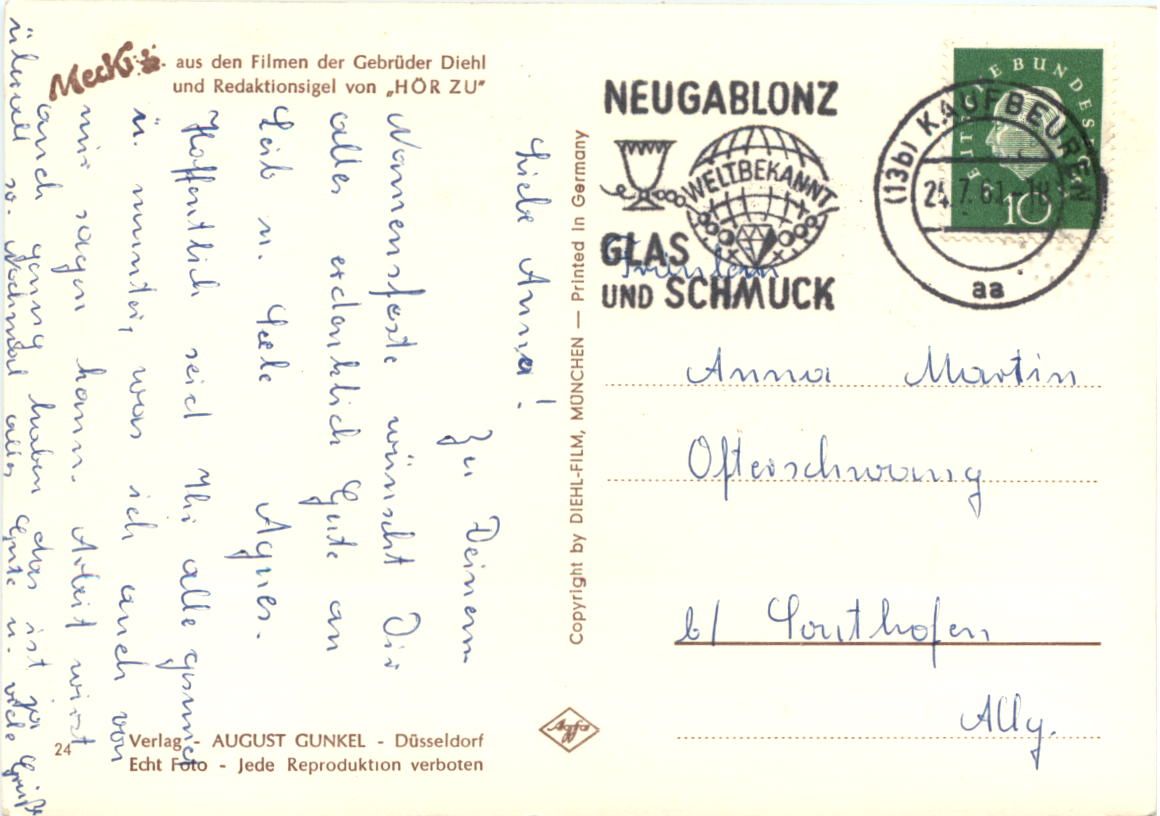 Mecki aus den Filmen der Gebrüder Diehl
und Redaktionsigel von „HÖR ZU"
Liebe Anna!
Zu Deinem
Namensfeste wünscht Dir
alles erdenklich Gute an
Leib u. Seele Agnes.
Hoffentlich seid Ihr alle gesund
u. munter, was ich auch von
mir sagen kann. Arbeit wirst
auch genug haben das ist ja
überall so. Nochmal alles Gute u. viele Grüße
24
Verlag - AUGUST GUNKEL - Düsseldorf
Echt Foto - Jede Reproduktion verboten
Copyright by DIEHL-FILM, MÜNCHEN — Printed in Germany
NEUGABLONZ
WELTBEKANNT
GLAS
UND SCHMUCK
(13b) KAUFBEUREN
7.61-18
aa
10
Fräulein
Anna Martin
Ofterschwang
b/ Sonthofen
Allg.
Agfa